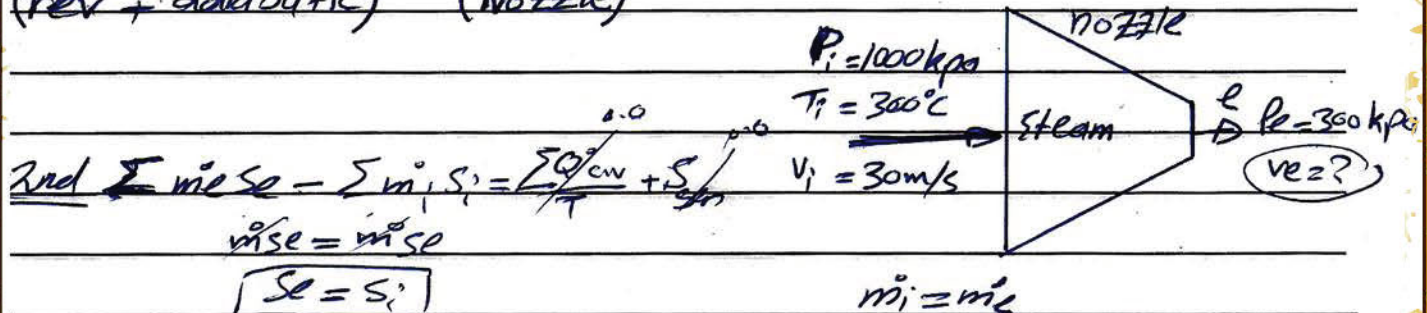 (rev + adiabatic) (Nozzle)
nozzle
Pi = 1000 kpa
Ti = 300°C
Vi = 30 m/s
steam
e
Pe = 300 kpa
ve = ?
2nd Σ ṁe se - Σ ṁi si = ΣQ̇cv/T + Ṡgen
ṁse = ṁse
Se = Si
ṁi = ṁe